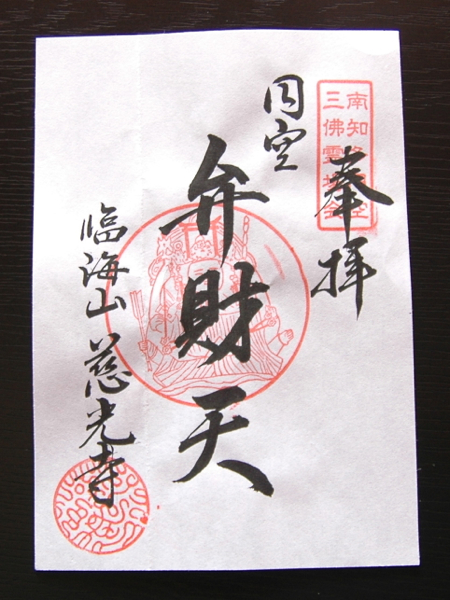 南知多円空
三佛霊場会
奉拝
円空
弁財天
臨海山 慈光寺